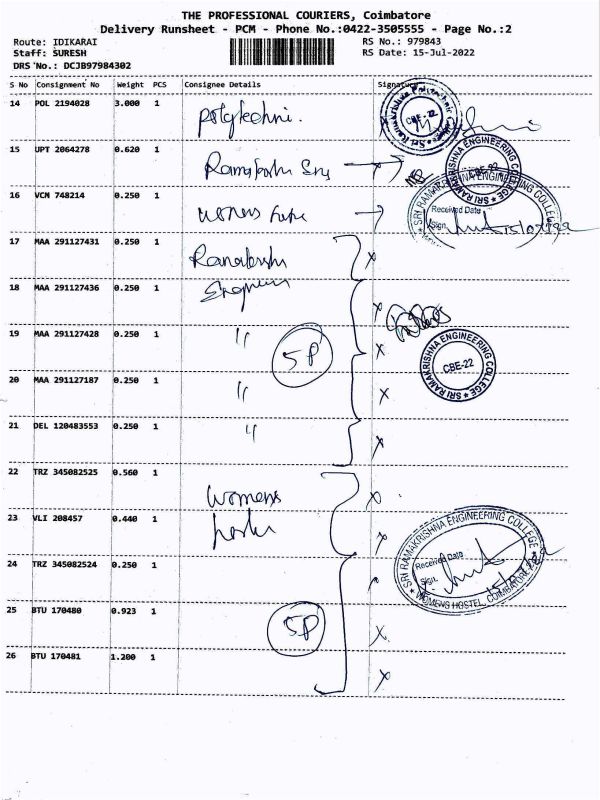 THE PROFESSIONAL COURIERS, Coimbatore
Delivery Runsheet - PCM - Phone No.:0422-3505555 - Page No.:2
Route: IDIKARAI
RS No.: 979843
Staff: SURESH
RS Date: 15-Jul-2022
DRS No.: DCJB97984302
S No Consignment No Weight PCS Consignee Details Signature
14 POL 2194028 3.000 1
SRI RAMAKRISHNA ENGINEERING COLLEGE
CBE-22
15 UPT 2064278 0.620 1
16 VCM 748214 0.250 1 womens
Received Date
Sign.
17 MAA 291127431 0.250 1
18 MAA 291127436 0.250 1
19 MAA 291127428 0.250 1 "
5P
SRI RAMAKRISHNA ENGINEERING COLLEGE
CBE-22
20 MAA 291127187 0.250 1 "
21 DEL 120483553 0.250 1 "
22 TRZ 345082525 0.560 1 womens
23 VLI 208457 0.440 1
SRI RAMAKRISHNA ENGINEERING COLLEGE
Received Date
Sign.
WOMENS HOSTEL, COIMBATORE
24 TRZ 345082524 0.250 1
25 BTU 170480 0.923 1
5P
26 BTU 170481 1.200 1